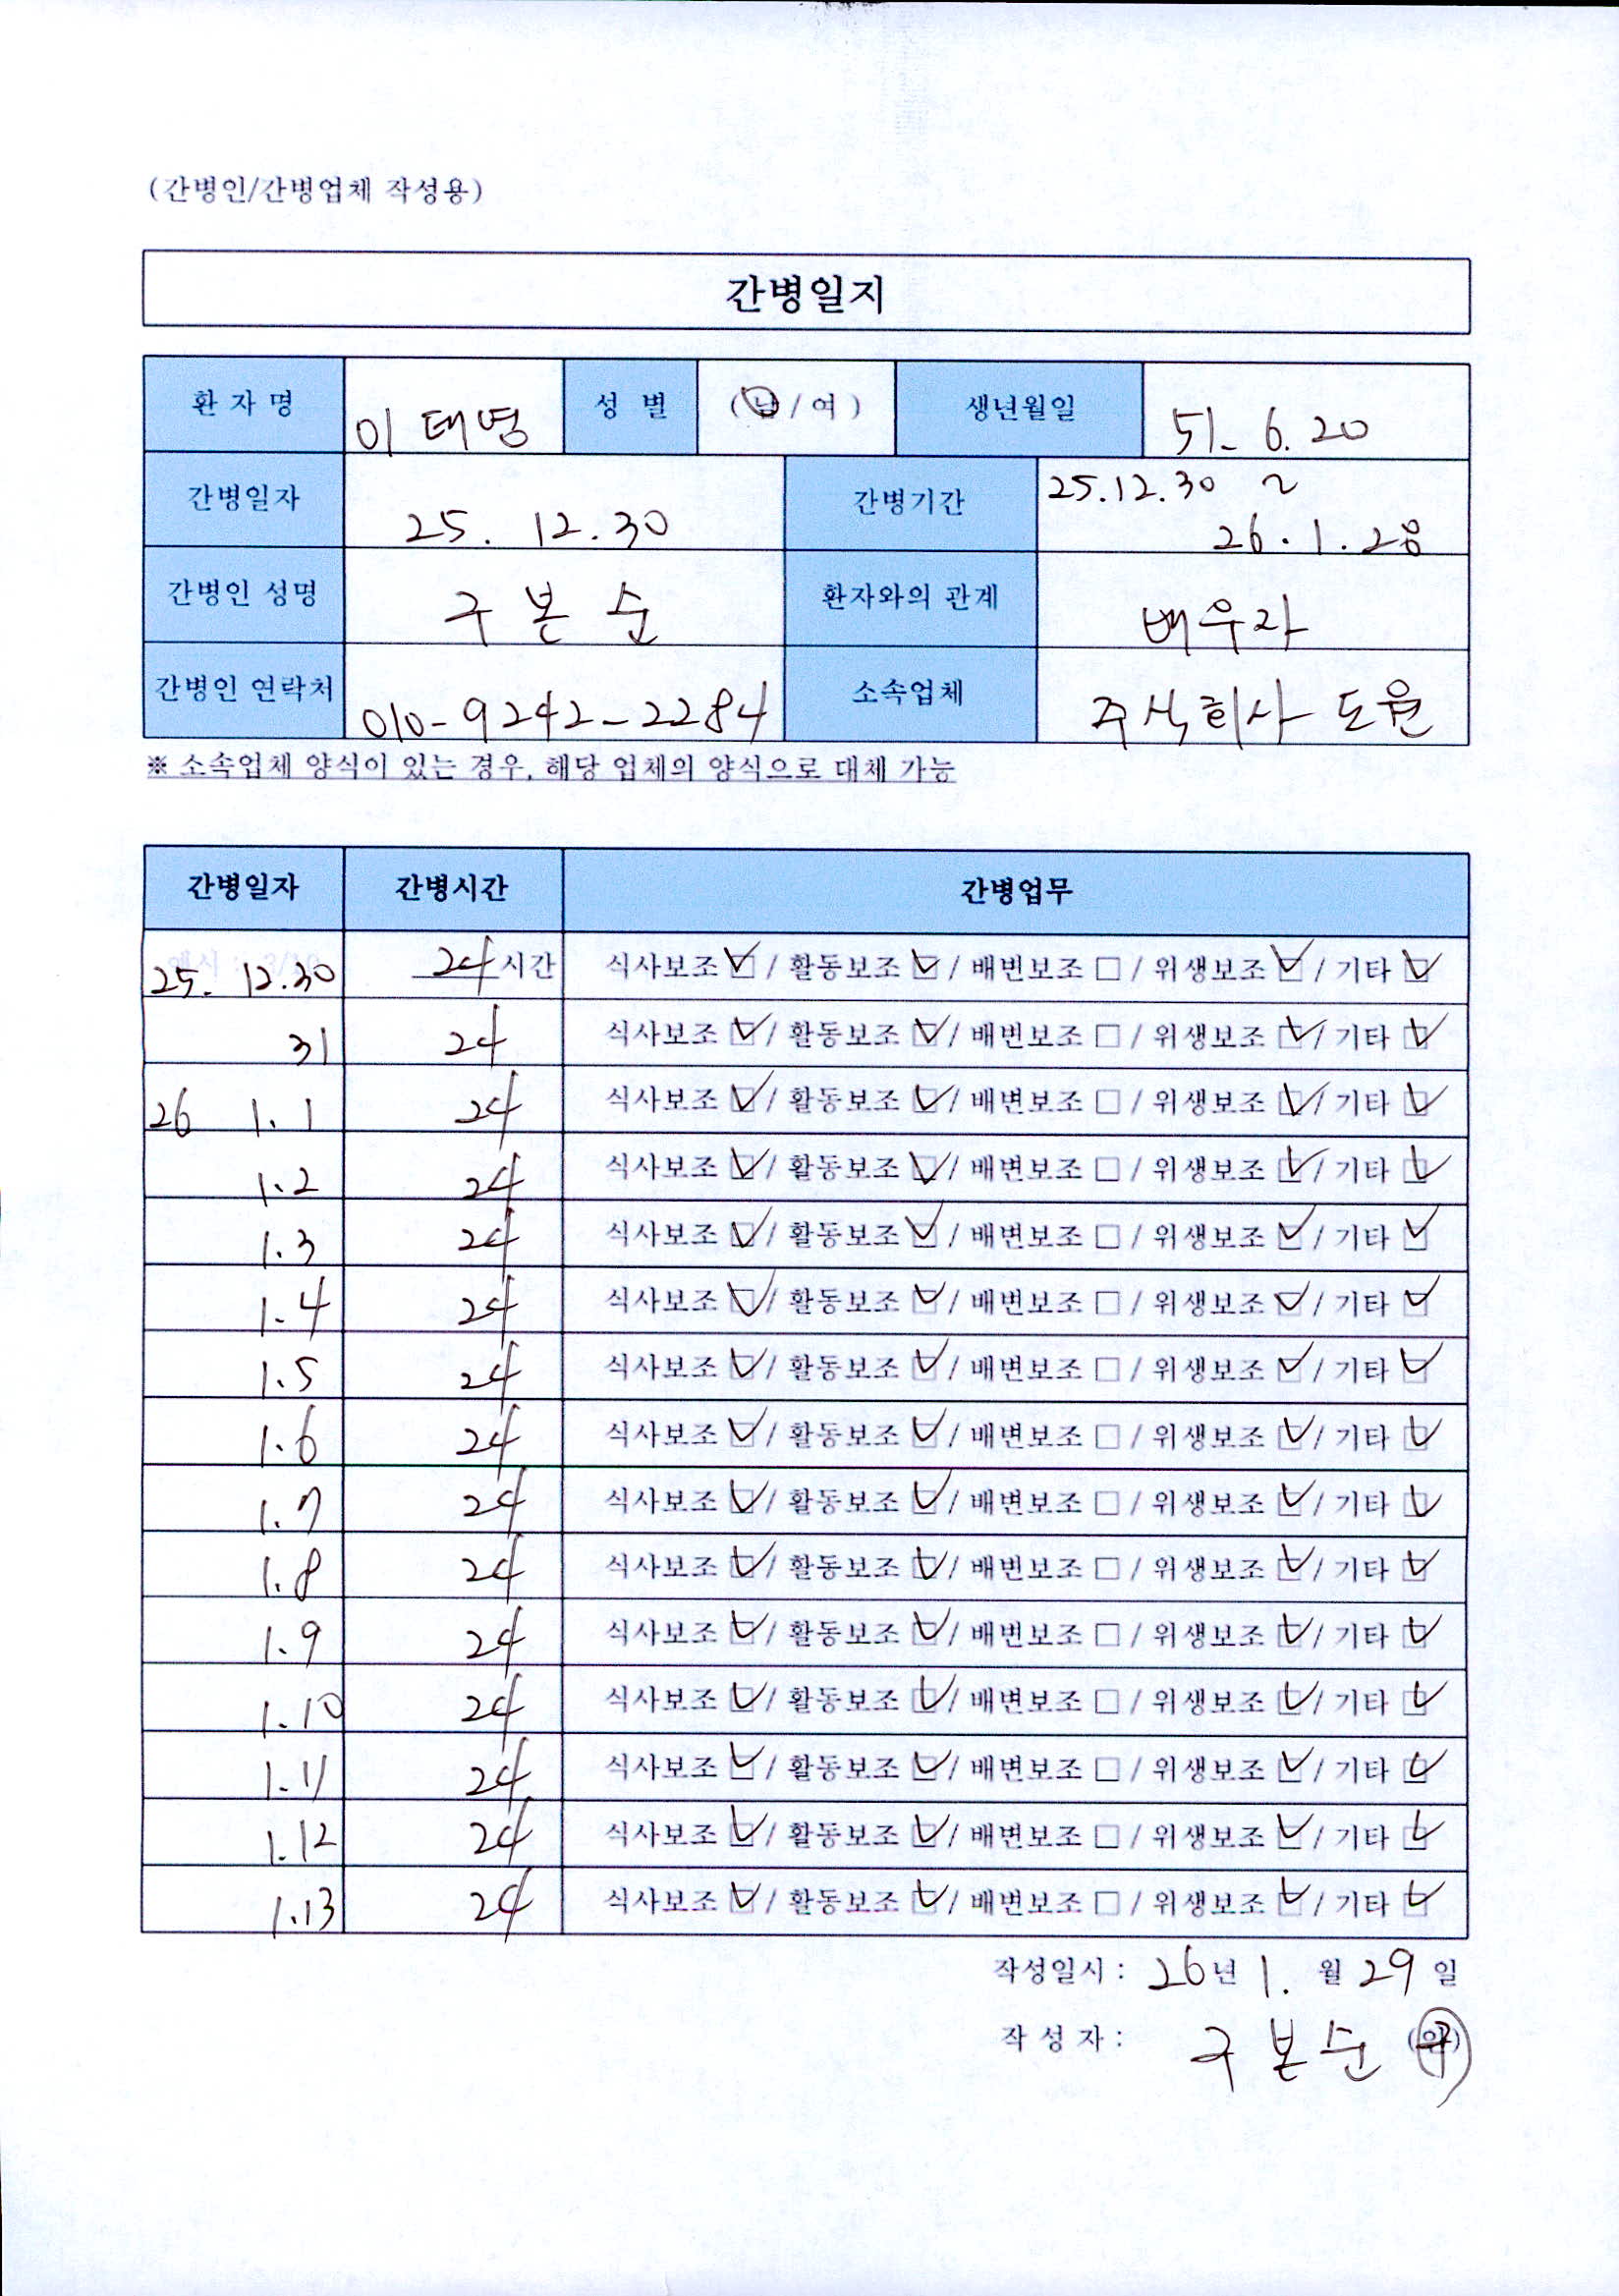 (간병인/간병업체 작성용)
간병일지
환 자 명 이태명 성 별 (남/여) 생년월일 51. 6. 20
간병일자 25. 12. 30 간병기간 25.12.30 ~ 26.1.28
간병인 성명 구본순 환자와의 관계 배우자
간병인 연락처 010-9242-2284 소속업체 주식회사 도원
※ 소속업체 양식이 있는 경우, 해당 업체의 양식으로 대체 가능
간병일자 간병시간 간병업무
25. 12.30 24 시간 식사보조 ☑ / 활동보조 ☑ / 배변보조 □ / 위생보조 ☑ / 기타 ☑
31 24 식사보조 ☑ / 활동보조 ☑ / 배변보조 □ / 위생보조 ☑ / 기타 ☑
26 1. 1 24 식사보조 ☑ / 활동보조 ☑ / 배변보조 □ / 위생보조 ☑ / 기타 ☑
1.2 24 식사보조 ☑ / 활동보조 ☑ / 배변보조 □ / 위생보조 ☑ / 기타 ☑
1.3 24 식사보조 ☑ / 활동보조 ☑ / 배변보조 □ / 위생보조 ☑ / 기타 ☑
1.4 24 식사보조 ☑ / 활동보조 ☑ / 배변보조 □ / 위생보조 ☑ / 기타 ☑
1.5 24 식사보조 ☑ / 활동보조 ☑ / 배변보조 □ / 위생보조 ☑ / 기타 ☑
1.6 24 식사보조 ☑ / 활동보조 ☑ / 배변보조 □ / 위생보조 ☑ / 기타 ☑
1.7 24 식사보조 ☑ / 활동보조 ☑ / 배변보조 □ / 위생보조 ☑ / 기타 ☑
1.8 24 식사보조 ☑ / 활동보조 ☑ / 배변보조 □ / 위생보조 ☑ / 기타 ☑
1.9 24 식사보조 ☑ / 활동보조 ☑ / 배변보조 □ / 위생보조 ☑ / 기타 ☑
1.10 24 식사보조 ☑ / 활동보조 ☑ / 배변보조 □ / 위생보조 ☑ / 기타 ☑
1.11 24 식사보조 ☑ / 활동보조 ☑ / 배변보조 □ / 위생보조 ☑ / 기타 ☑
1.12 24 식사보조 ☑ / 활동보조 ☑ / 배변보조 □ / 위생보조 ☑ / 기타 ☑
1.13 24 식사보조 ☑ / 활동보조 ☑ / 배변보조 □ / 위생보조 ☑ / 기타 ☑
작성일시 : 26년 1. 월 29 일
작 성 자 : 구본순 (인) 구